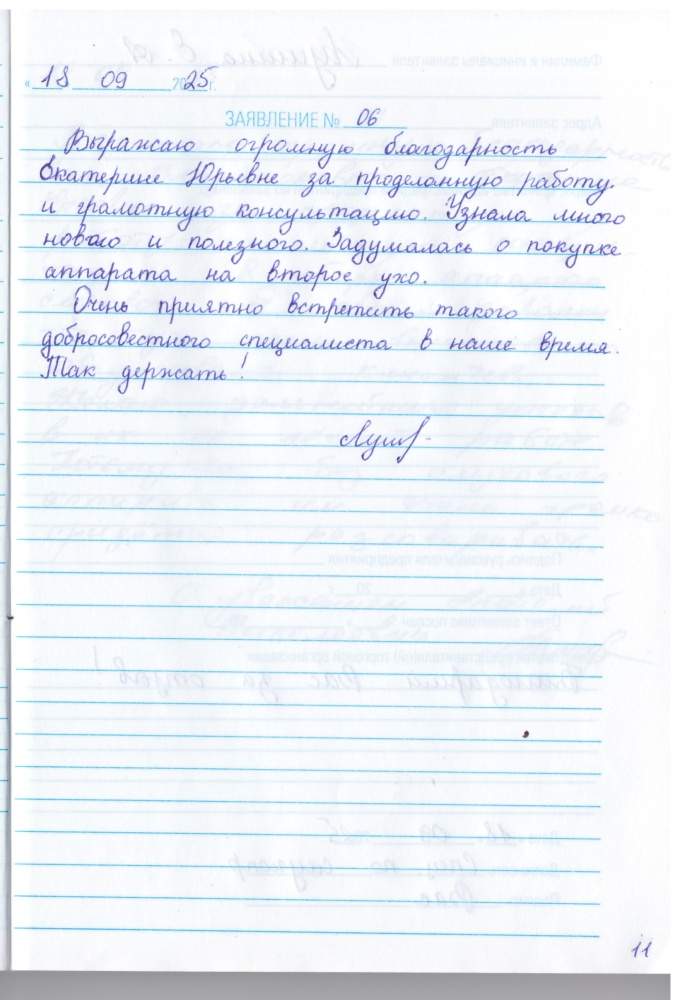 « 18 09 2025 г.
ЗАЯВЛЕНИЕ № 06
Выражаю огромную благодарность
Екатерине Юрьевне за проделанную работу.
и грамотную консультацию. Узнала много
нового и полезного. Задумалась о покупке
аппарата на второе ухо.
Очень приятно встретить такого
добросовестного специалиста в наше время.
Так держать!
11